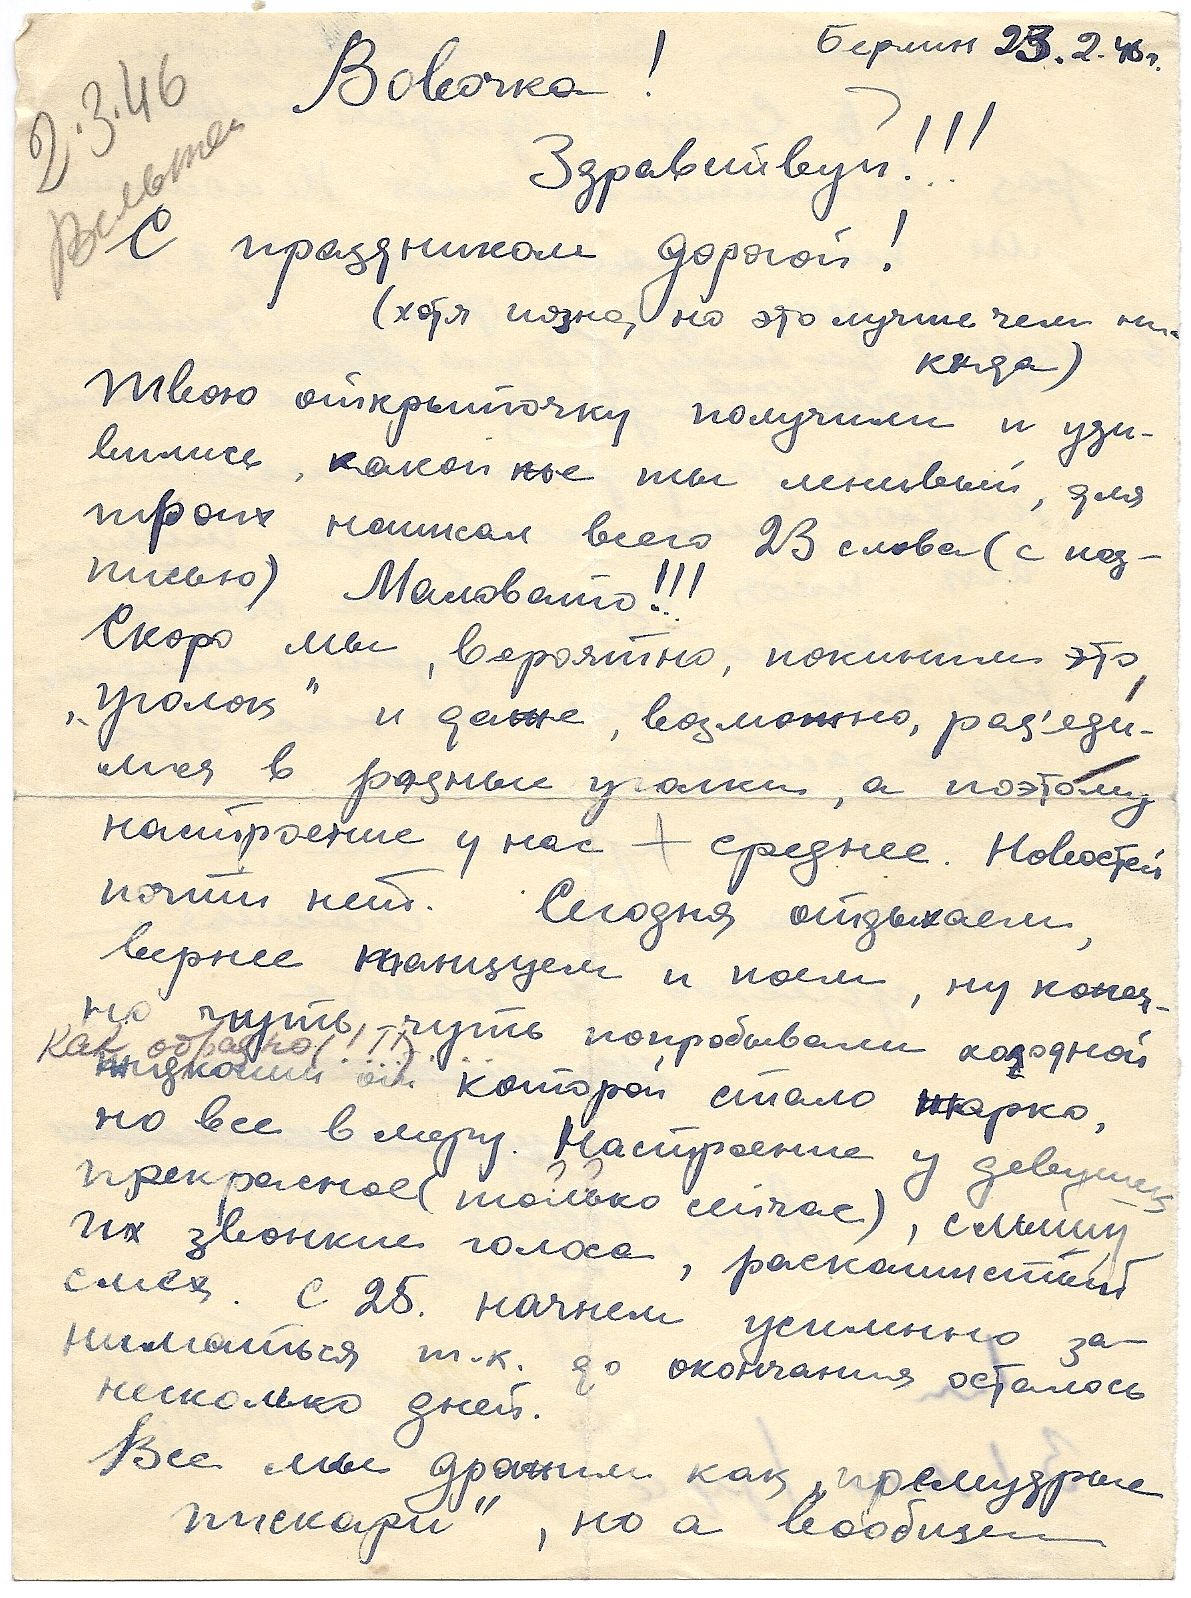 Берлин 23.2.46г.
2.3.46
Вовочка!
Здравствуй!!!
С праздником дорогой!
(хотя позно, но это лучше чем ни-
когда)
Твою открыточку получили и уди-
вились, какой же ты ленивый, для
троих написал всего 23 слова (с под-
писью) Маловато!!!
Скоро мы, вероятно, покинем это,
„уголок" и даже, возможно, раз'еди-
мся в разные уголки, а поэтому
настроение у нас + среднее. Новостей
почти нет. Сегодня отдыхаем,
вернее танцуем и поем, ну конеч-
но чуть, чуть попробывали холодной
Как обычно(!!!)
жидкости от которой стало жарко,
но все в меру. Настроение у девушек
прекрасное (только сейчас), слышу
их звонкие голоса, раскатистый
смех. С 25. начнем усиленно за-
ниматься т.к. до окончания осталось
несколько дней.
Все мы дрожим как „премудрые
пискари", но а вообщем